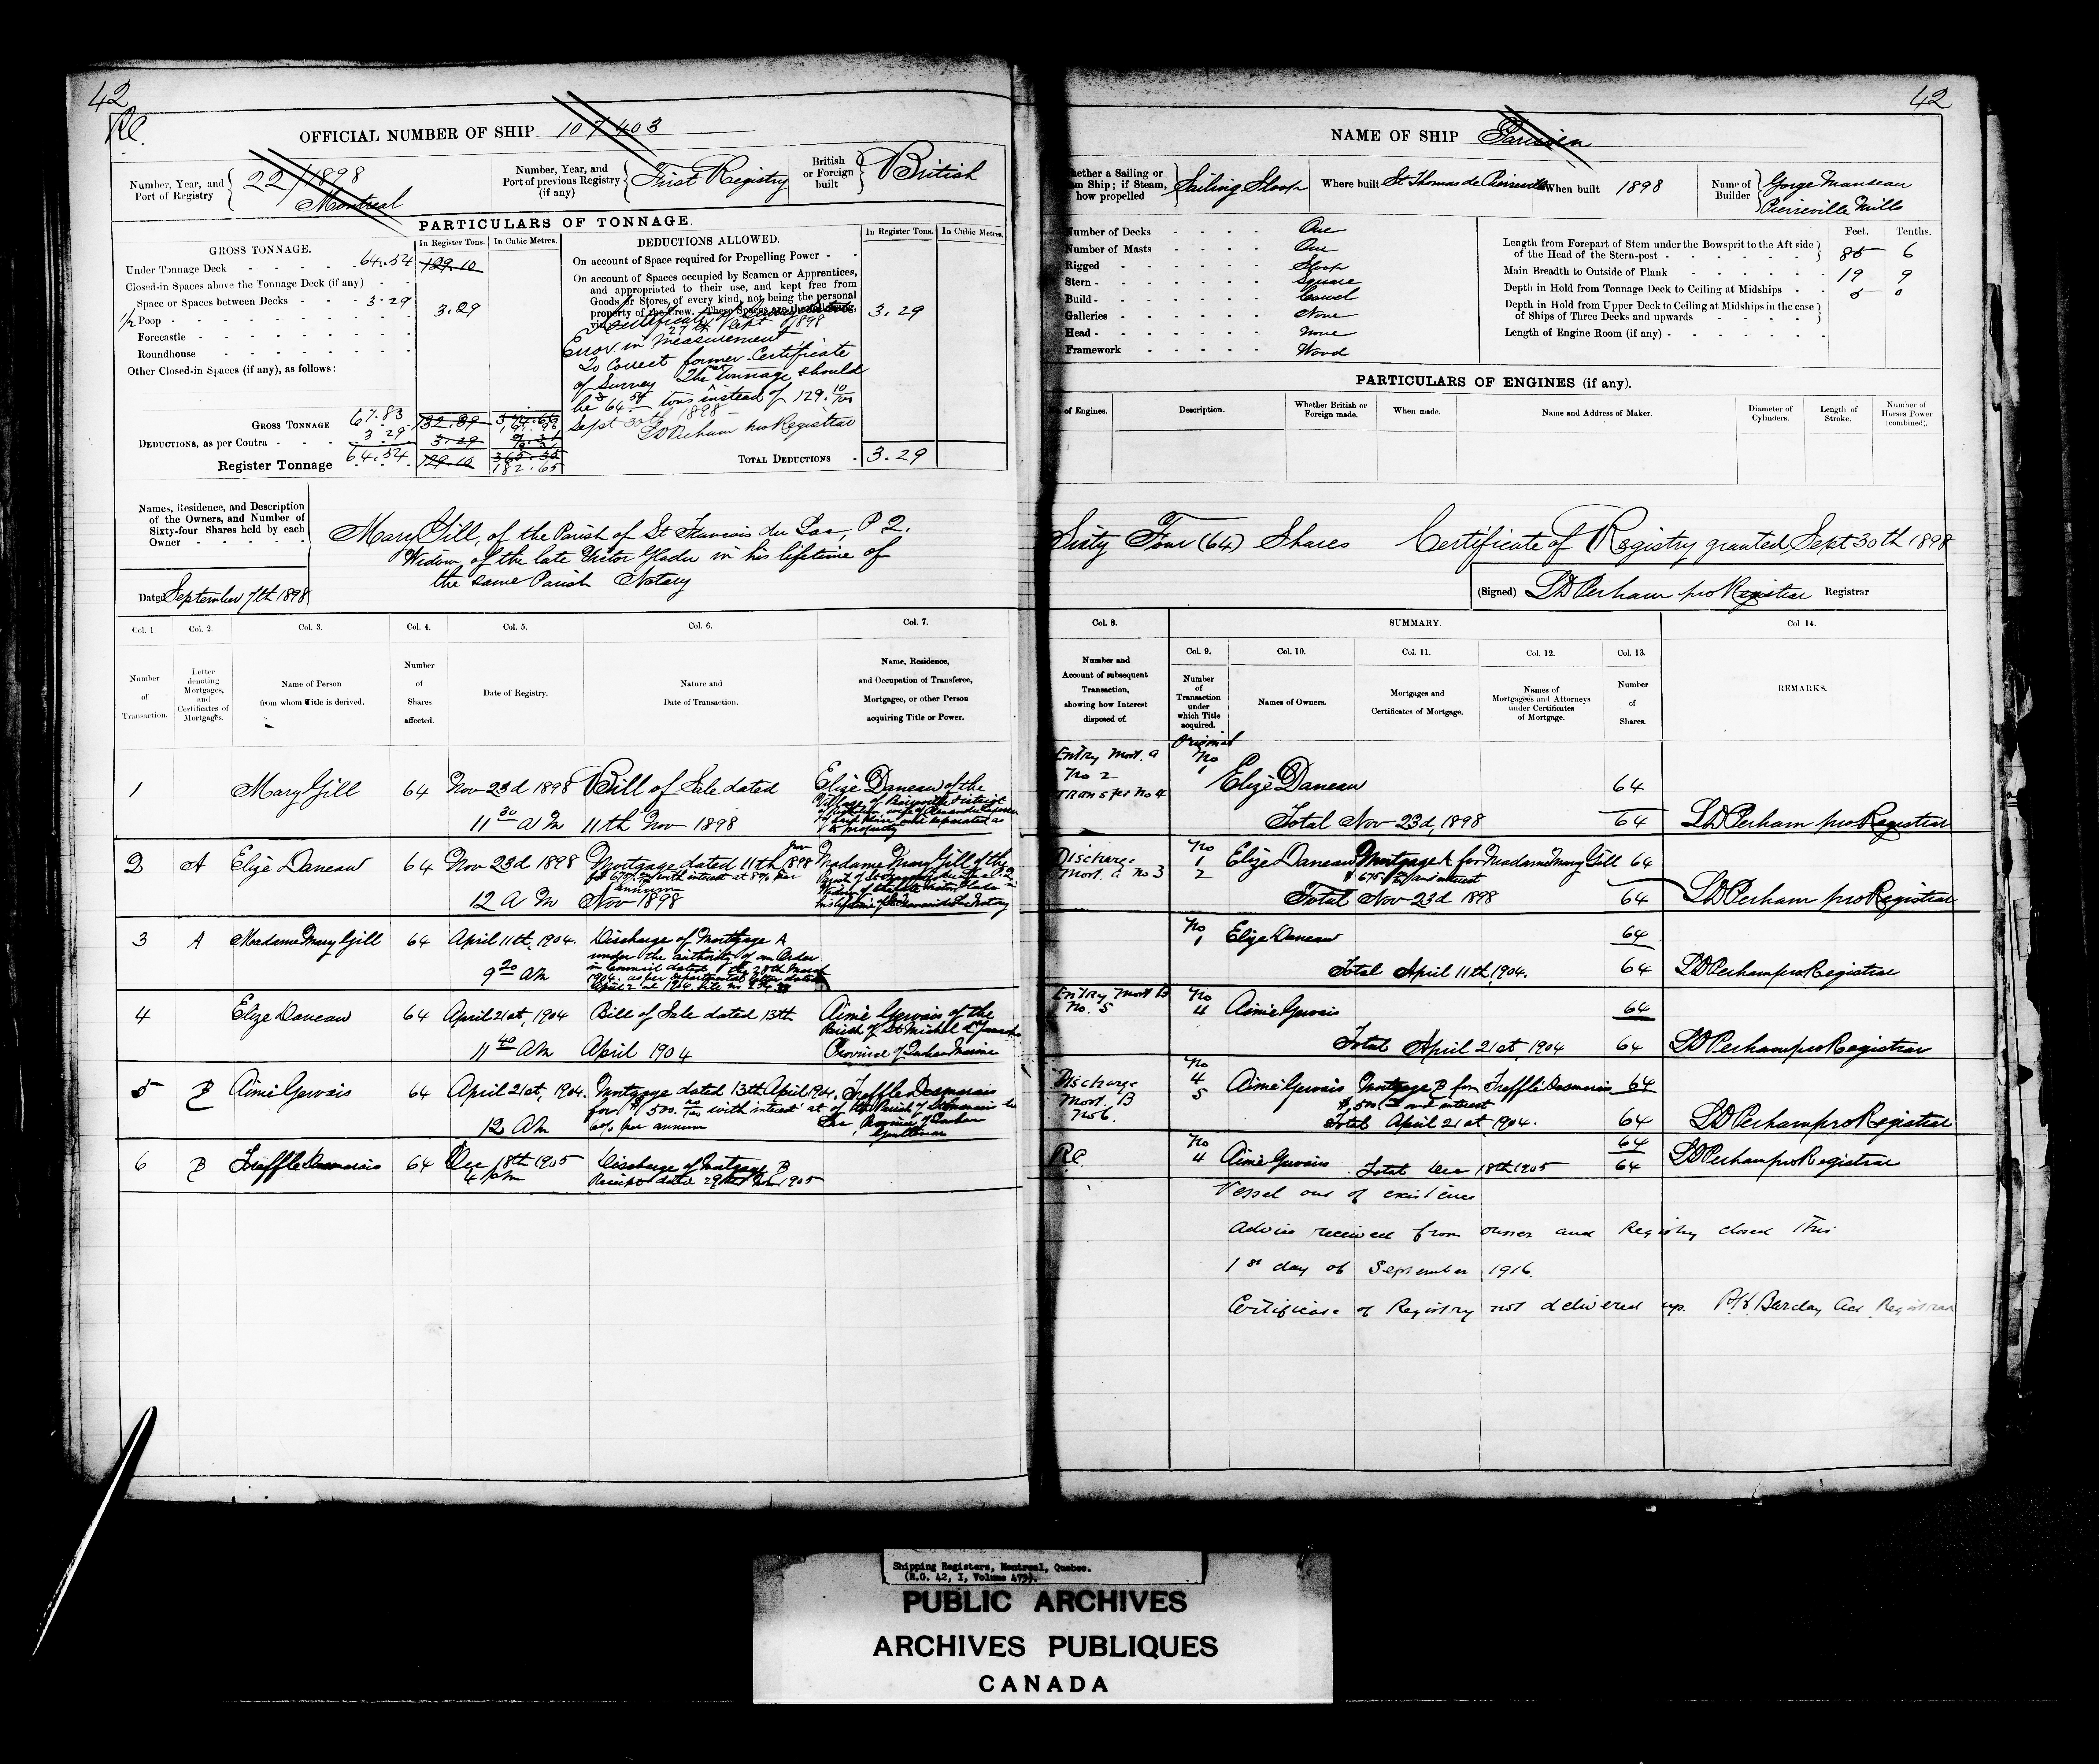 42
RC.
OFFICIAL NUMBER OF SHIP 107403
Number, Year, and Port of Registry 22/1898 Montreal
Number, Year, and Port of previous Registry (if any) First Registry
British or Foreign built British
PARTICULARS OF TONNAGE.
GROSS TONNAGE.
In Register Tons. In Cubic Metres.
Under Tonnage Deck 64.54 129.10
Closed-in Spaces above the Tonnage Deck (if any)
Space or Spaces between Decks 3.29
1/2 Poop 3.29
Forecastle
Roundhouse
Other Closed-in Spaces (if any), as follows:
GROSS TONNAGE 67.83 132.39
DEDUCTIONS, as per Contra 3.29 3.29
Register Tonnage 64.54 129.10 365.35
182.65
DEDUCTIONS ALLOWED.
In Register Tons. In Cubic Metres.
On account of Space required for Propelling Power
On account of Spaces occupied by Seamen or Apprentices,
and appropriated to their use, and kept free from
Goods or Stores, of every kind, not being the personal
property of the Crew. These Spaces are the following, 3.29
viz.:
27th Sept 1898
Error in Measurement
To correct former Certificate
of Survey The net tonnage should
be 64.54 tons instead of 129.10/100
Sept 30th 1898
LD Perham pro Registrar
TOTAL DEDUCTIONS 3.29
Names, Residence, and Description
of the Owners, and Number of
Sixty-four Shares held by each
Owner
Mary Gill, of the Parish of St Francois du Lac, P 2.
Widow of the late Victor Gladu in his lifetime of
the same Parish Notary
Dated September 7th 1898
Col. 1. Col. 2. Col. 3. Col. 4. Col. 5. Col. 6. Col. 7.
Number of Transaction.
Letter denoting Mortgages, and Certificates of Mortgages.
Name of Person from whom Title is derived.
Number of Shares affected.
Date of Registry.
Nature and Date of Transaction.
Name, Residence, and Occupation of Transferee, Mortgagee, or other Person acquiring Title or Power.
1 Mary Gill 64 Nov 23d 1898 Bill of Sale dated Elize Daneau of the
11 30 AM 11th Nov 1898
to property
2 A Elize Daneau 64 Nov 23d 1898 Mortgage dated 11th Madame Mary Gill of the
with interest at 8% per
annum
12 A M Nov 1898
3 A Madame Mary Gill 64 April 11th, 1904. Discharge of Mortgage A
under the authority of an Order
in Council dated the 28th March
9 20 AM 1904. as per departmental letter dated
4 Elize Daneau 64 April 21st, 1904 Bill of Sale dated 13th Aimé Gervais of the
Parish of St Michel
11 40 AM April 1904 Province of Quebec
5 B Aimé Gervais 64 April 21st, 1904. Mortgage dated 13th April 1904. Treffle Desmarais
for $1,500. with interest at of the Parish of St Francois du
12 AM 6% per annum Lac Province of Quebec
Gentleman
6 B Treffle Desmarais 64 Dec 18th 1905 Discharge of Mortgage B
4 pm Receipt dated 29th Nov 1905
42
NAME OF SHIP Parisien
hether a Sailing or
am Ship; if Steam,
how propelled
Sailing Sloop
Where built St Thomas de Pierreville
When built 1898
Name of Builder Gorge Manseau
Pierreville Mills
Number of Decks One
Number of Masts One
Rigged Sloop
Stern Square
Build Carvel
Galleries None
Head None
Framework Wood
Feet. Tenths.
Length from Forepart of Stem under the Bowsprit to the Aft side
of the Head of the Stern-post 85 6
Main Breadth to Outside of Plank 19 9
Depth in Hold from Tonnage Deck to Ceiling at Midships 5 0
Depth in Hold from Upper Deck to Ceiling at Midships in the case
of Ships of Three Decks and upwards
Length of Engine Room (if any)
PARTICULARS OF ENGINES (if any).
of Engines. Description. Whether British or Foreign made. When made. Name and Address of Maker. Diameter of Cylinders. Length of Stroke. Number of Horses Power (combined).
Sixty Four (64) Shares Certificate of Registry granted Sept 30th 1898
(Signed) LD Perham pro Registrar Registrar
Col. 8. SUMMARY. Col 14.
Col. 9. Col. 10. Col. 11. Col. 12. Col. 13.
Number and Account of subsequent Transaction, showing how Interest disposed of.
Number of Transaction under which Title acquired.
Names of Owners.
Mortgages and Certificates of Mortgage.
Names of Mortgagees and Attorneys under Certificates of Mortgage.
Number of Shares.
REMARKS.
Original
Entry Mort. A No
No 2 1 Elize Daneau 64
Transfer No 4
Total Nov 23d, 1898 64 LD Perham pro Registrar
Discharge No
Mort. A No 3 1 Elize Daneau Mortgage A for Madame Mary Gill 64
2 $675 and interest
Total Nov 23d 1898 64 LD Perham pro Registrar
No
1 Elize Daneau 64
Total April 11th, 1904. 64 LD Perham pro Registrar
Entry Mort B No
No. 5 4 Aimé Gervais 64
Total April 21st, 1904 64 LD Perham pro Registrar
Discharge No
Mort. B 4 Aimé Gervais Mortgage B for Treffle Desmarais 64
No 6. 5 $1,500 and interest
Total April 21st, 1904. 64 LD Perham pro Registrar
RC. No 64
4 Aimé Gervais Total Dec 18th 1905 64 LD Perham pro Registrar
Vessel out of existence
Advice received from owner and Registry closed this
1st day of September 1916.
Certificate of Registry not delivered up. Barclay Act Registrar
Shipping Registers, Montreal, Quebec.
(R.G. 42, I, Volume 479).
PUBLIC ARCHIVES
ARCHIVES PUBLIQUES
CANADA